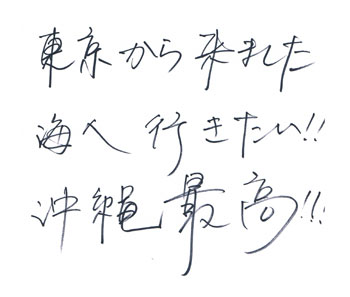 東京から来ました
海へ行きたい!!
沖縄最高!!!